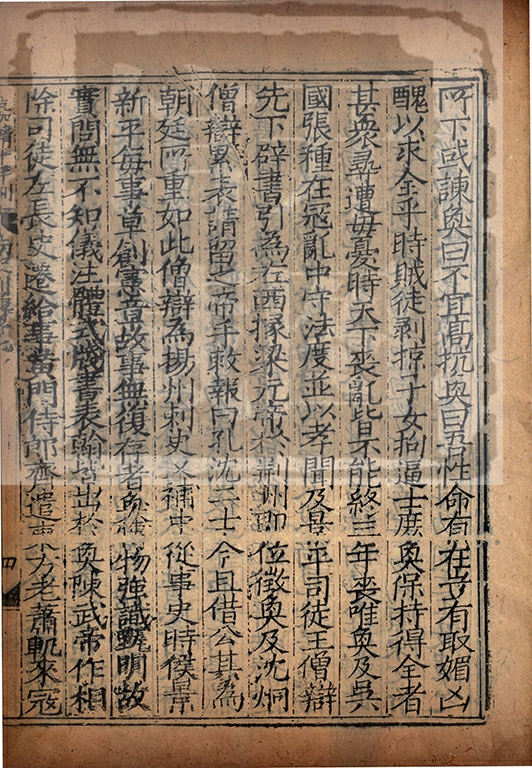 所下或諫奐曰不宜高抗奐曰吾性命有在豈有取媚凶
醜以求全乎時賊徒剥掠子女拘逼士庶奐保持得全者
甚衆尋遭母憂時天下喪亂皆不能終三年喪唯奐及吳
國張種在寇亂中守法度並以孝聞及景平司徒王僧辯
先下辟書引為左西掾梁元帝於荆州即位徵奐及沈炯
僧辯累表請留之帝手敕報曰孔沈二士今且借公其為
朝廷所重如此僧辯為揚州刺史又補中從事史時侯景
新平每事草創憲章故事無復存者奐博物強識甄明故
實問無不知儀注體式牋書表翰皆出於奐陳武帝作相
除司徒左長史遷給事黄門侍郎齊遣東方老蕭軌來寇
四